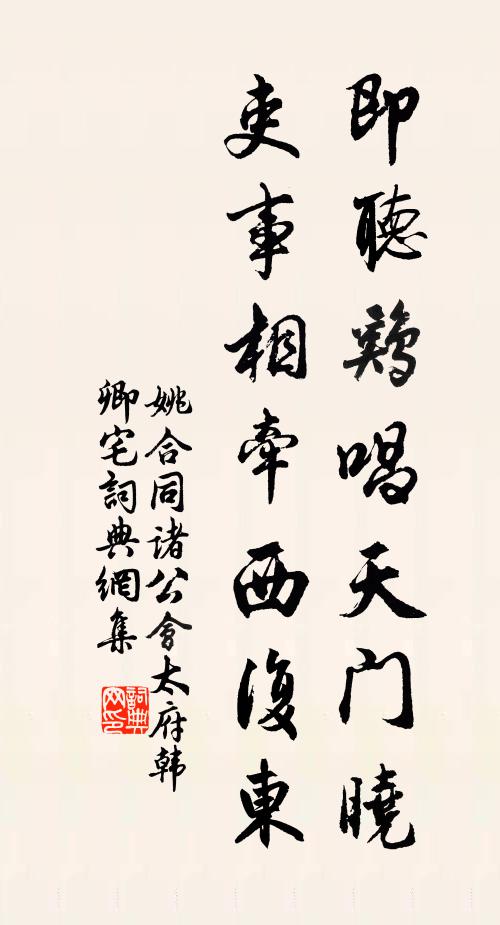 即聽鷄唱天門曉
吏事相牽西復東
姚合同诸公會太府韩
卿宅詞典網集
詞典网印